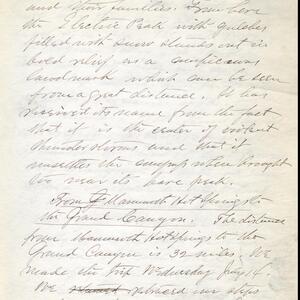 and their families. From here
the Electric Peak with gulches
filled with snow stands out in
bold relief as a conspicuous
landmark which can be seen
from a great distance. It has
received its name from the fact
that it is the center of violent
thunderstorms and that it
unsettles the compass when brought
too near its bare peak.
From Mammoth Hot Springs to
the Grand Canyon. The distance
from Mammoth Hot Springs to the
Grand Canyon is 32 miles. We
made the trip Wednesday
We retraced our steps